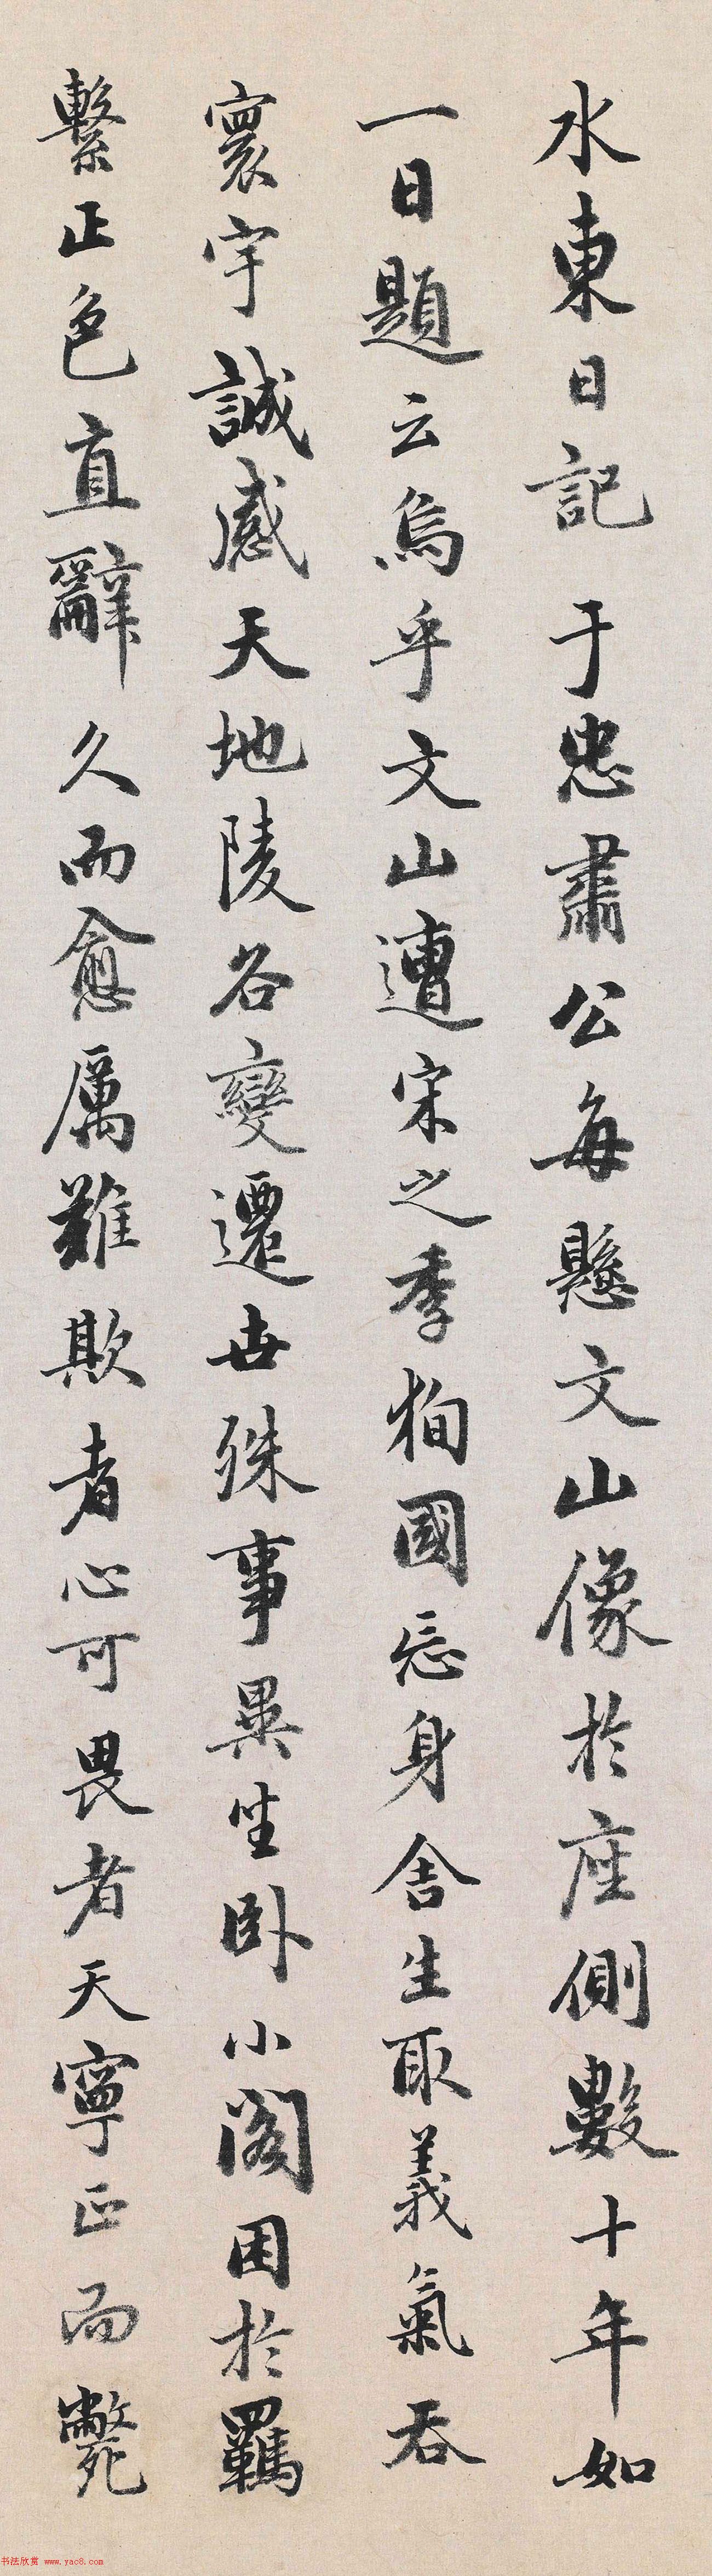 水東日記于忠肅公每懸文山像於座側數十年如
一日題云烏乎文山遭宋之季狥國忘身舍生取義氣吞
寰宇誠感天地陵谷變遷世殊事異坐臥小閣困於羈
繫正色直辭久而愈厲難欺者心可畏者天寧正而斃
书法欣赏 www.yac8.com